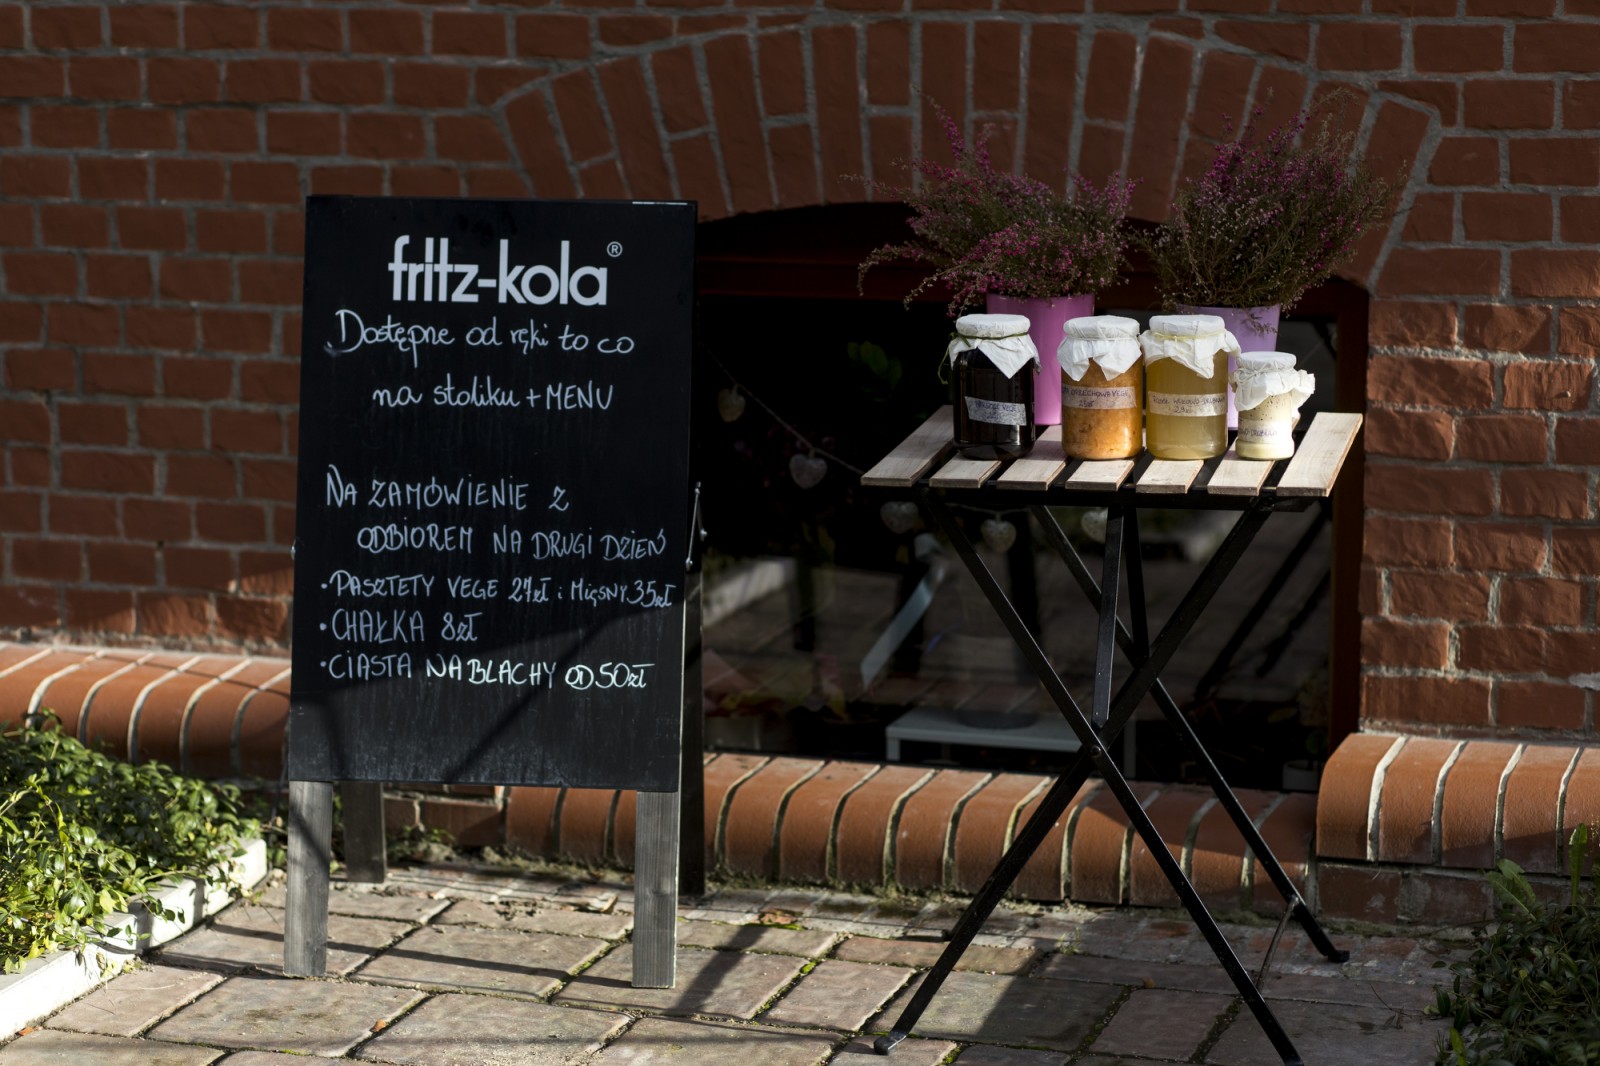 fritz-kola®
Dostępne od ręki to co
na stoliku + MENU
NA ZAMÓWIENIE Z
ODBIOREM NA DRUGI DZIEŃ
• PASZTETY VEGE 27zł i MięSNY 35zł
• CHAŁKA 8zł
• CIASTA NA BLACHY OD 50zł
VEGE